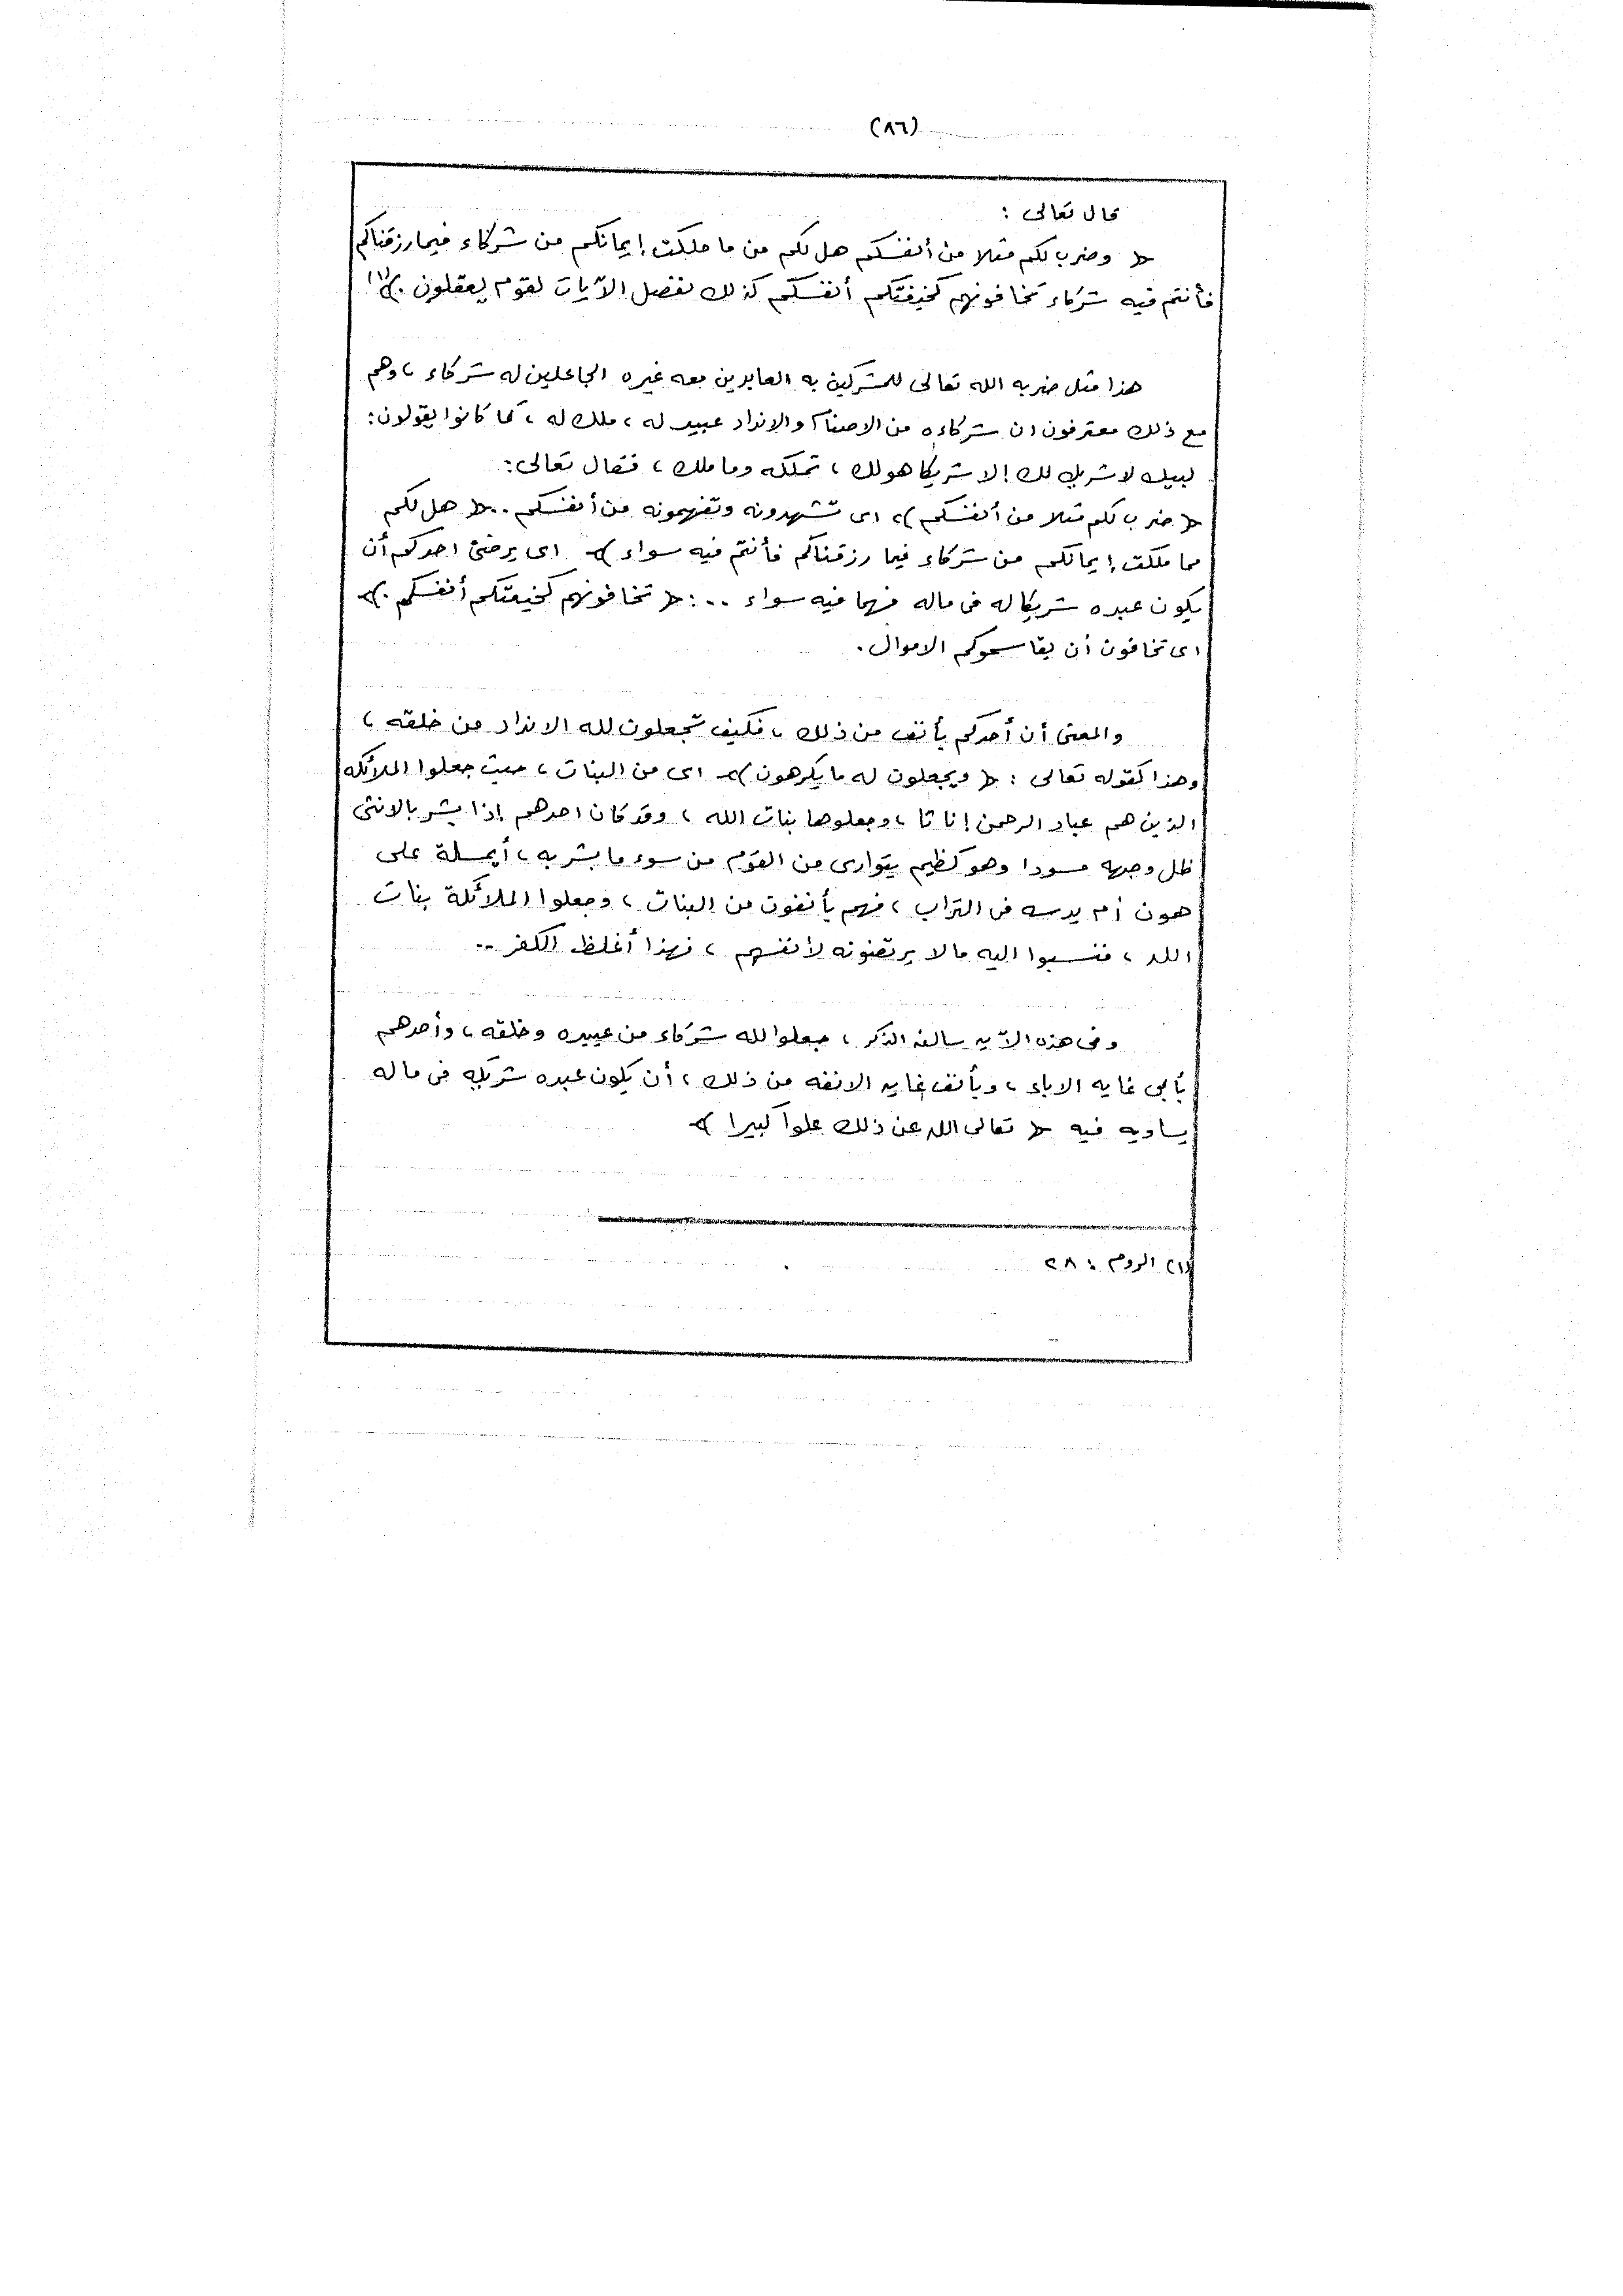 (٨٦)
قال تعالى :
﴿ وضرب لكم مثلا من أنفسكم هل لكم من ما ملكت إيمانكم من شركاء فيما رزقناكم
فأنتم فيه شركاء تخافونهم كخيفتكم أنفسكم كذلك نفصل الآيات لقوم يعقلون . ﴾(١)
هذا مثل ضربه الله تعالى للمشركين به العابدين معه غيره الجاعلين له شركاء ، وهم
مع ذلك معترفون ان شركاءه من الاصنام والانداد عبيد له ، ملك له ، كما كانوا يقولون :
لبيك لا شريك لك إلا شريكا هو لك ، تملكه وما ملك ، فقال تعالى :
﴿ ضرب لكم مثلا من أنفسكم ﴾ ، اى تشهدونه وتفهمونه من أنفسكم .. ﴿ هل لكم
مما ملكت إيمانكم من شركاء فيما رزقناكم فأنتم فيه سواء ﴾ اى يرضى احدكم أن
يكون عبده شريكا له فى ماله فهما فيه سواء ..: ﴿ تخافونهم كخيفتكم أنفسكم . ﴾
اى تخافون أن يقاسموكم الاموال .
والمعنى أن أحدكم يأنف من ذلك ، فكيف تجعلون لله الانداد من خلقه ،
وهذا كقوله تعالى : ﴿ ويجعلون له ما يكرهون ﴾ اى من البنات ، حيث جعلوا الملائكه
الذين هم عباد الرحمن إناثا ، وجعلوها بنات الله ، وقد كان احدهم إذا بشر بالانثى
ظل وجهه مسودا وهو كظيم يتوارى من القوم من سوء ما بشر به ، أيمسكه على
هون أم يدسه فى التراب ، فهم يأنفون من البنات ، وجعلوا الملائكة بنات
الله ، فنسبوا اليه ما لا يرتضونه لأنفسهم ، فهذا أغلظ الكفر ..
وفى هذه الآيه سالفه الذكر ، جعلوا لله شركاء من عبيده وخلقه ، وأحدهم
يأبى غايه الاباء ، ويأنف غايه الانفه من ذلك ، أن يكون عبده شريكه فى ماله
يساويه فيه ﴿ تعالى الله عن ذلك علوا كبيرا ﴾
(١) الروم : ٢٨